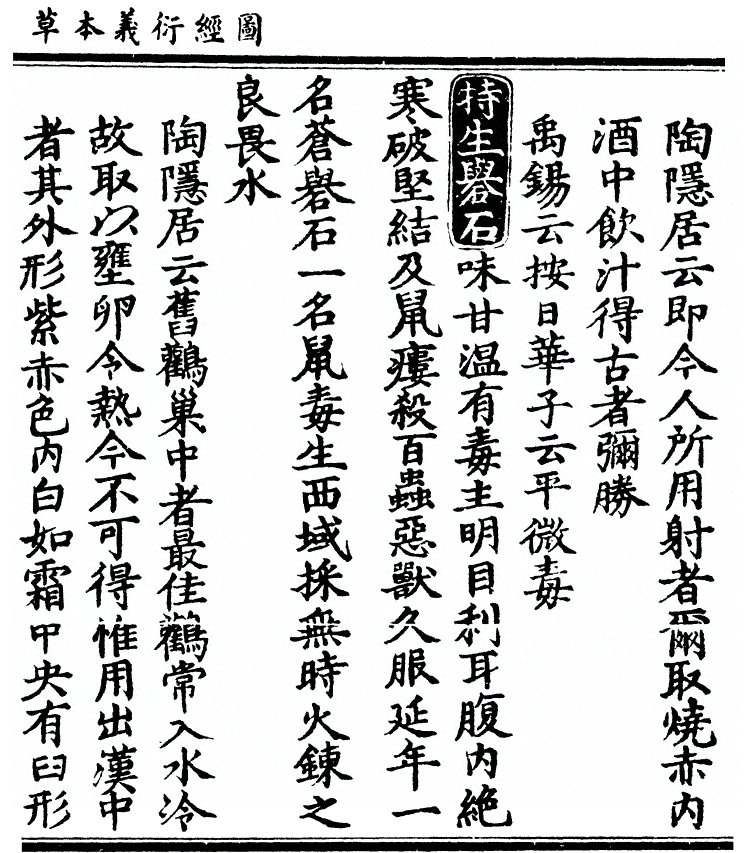 圖經衍義本草
陶隱居云即今人所用射者爾取燒赤內
酒中飲汁得古者彌勝
禹錫云按日華子云平微毒
特生礜石味甘温有毒主明目利耳腹內絶
寒破堅結及鼠瘻殺百蟲惡獸久服延年一
名蒼礜石一名鼠毒生西域採無時火鍊之
良畏水
陶隱居云舊鸛巢中者最佳鸛常入水冷
故取以壅卵令熱今不可得惟用出漢中
者其外形紫赤色內白如霜中央有臼形